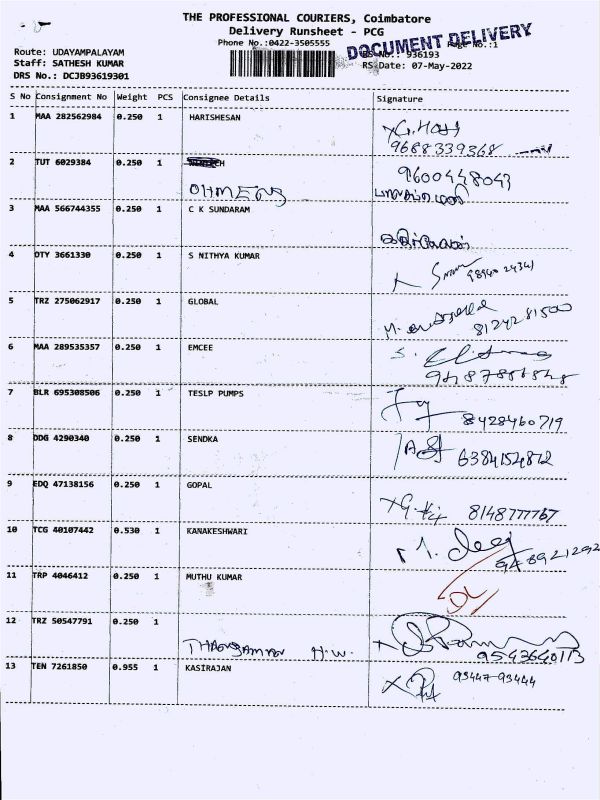 THE PROFESSIONAL COURIERS, Coimbatore
Delivery Runsheet - PCG
Phone No.:0422-3505555
DOCUMENT DELIVERY
Page No.:1
Route: UDAYAMPALAYAM
RS No.: 936193
Staff: SATHESH KUMAR
RS Date: 07-May-2022
DRS No.: DCJB93619301
S No Consignment No Weight PCS Consignee Details Signature
1 MAA 282562984 0.250 1 HARISHESAN
9688339368
2 TUT 6029384 0.250 1 9600448043
OHMENS
3 MAA 566744355 0.250 1 C K SUNDARAM
4 OTY 3661330 0.250 1 S NITHYA KUMAR
98940 24341
5 TRZ 275062917 0.250 1 GLOBAL
8124281500
6 MAA 289535357 0.250 1 EMCEE
7 BLR 695308506 0.250 1 TESLP PUMPS
8428460719
8 DDG 4290340 0.250 1 SENDKA
6384152812
9 EDQ 47138156 0.250 1 GOPAL
8148777767
10 TCG 40107442 0.530 1 KANAKESHWARI
948921292
11 TRP 4046412 0.250 1 MUTHU KUMAR
12 TRZ 50547791 0.250 1
H.W.
9543640113
13 TEN 7261850 0.955 1 KASIRAJAN
93447-93444